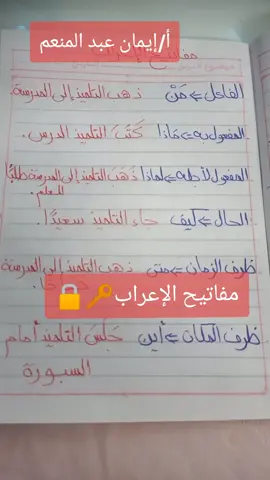 أ/إيمان عبد المنعم
الفاعل ⇐ مَنْ ذهب التلميذ إلى المدرسة.
المفعول به ⇐ مَاذا كَتَبَ التلميذ الدرس.
المفعول لأجله ⇐ لماذا ذَهَبَ التلميذ إلى المدرسة طلبًا
للعلم.
الحال ⇐ كيف جاء التلميذ سعيدًا.
ظرف الزمان ⇐ متى ذهب التلميذ إلى المدرسة
مفاتيح الإعراب🔑🔒
ظرف المكان ⇐ أين جَلَسَ التلميذ أمام
السبورة